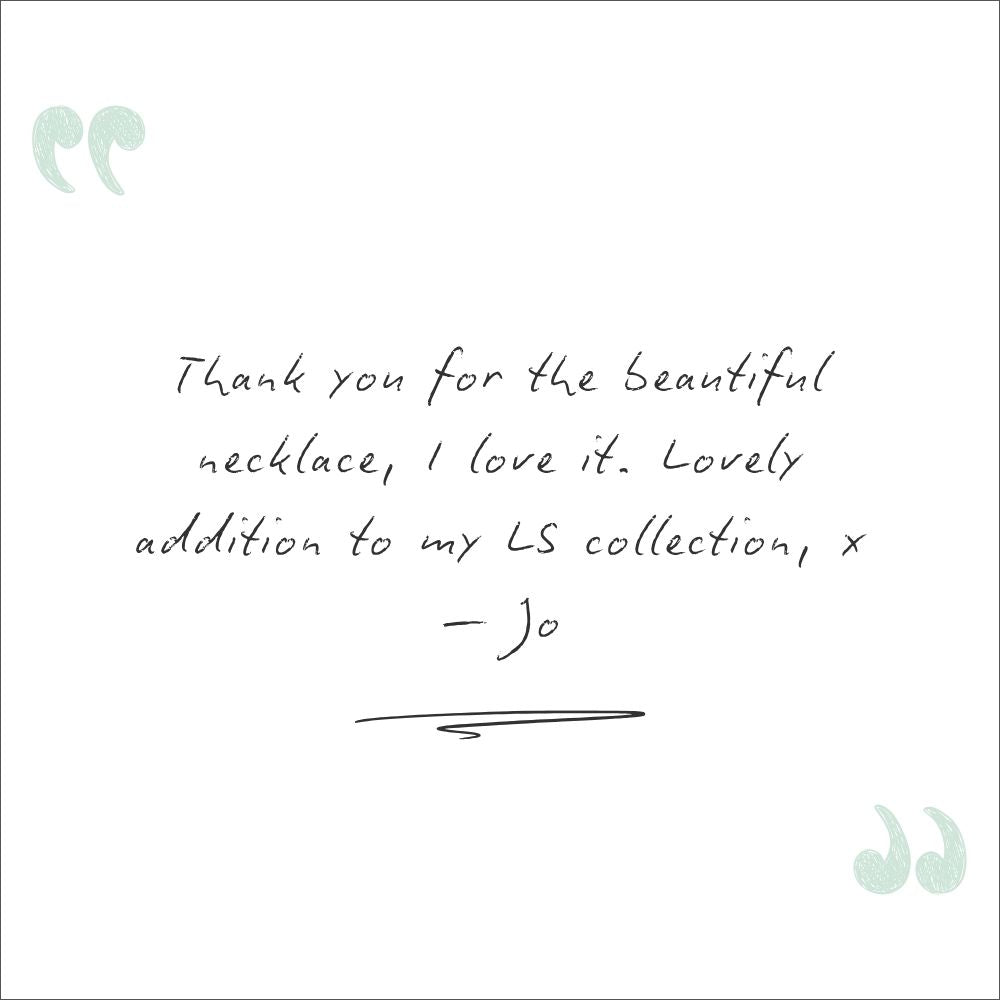 Thank you for the beautiful
necklace, I love it. Lovely
addition to my LS collection, x
– Jo